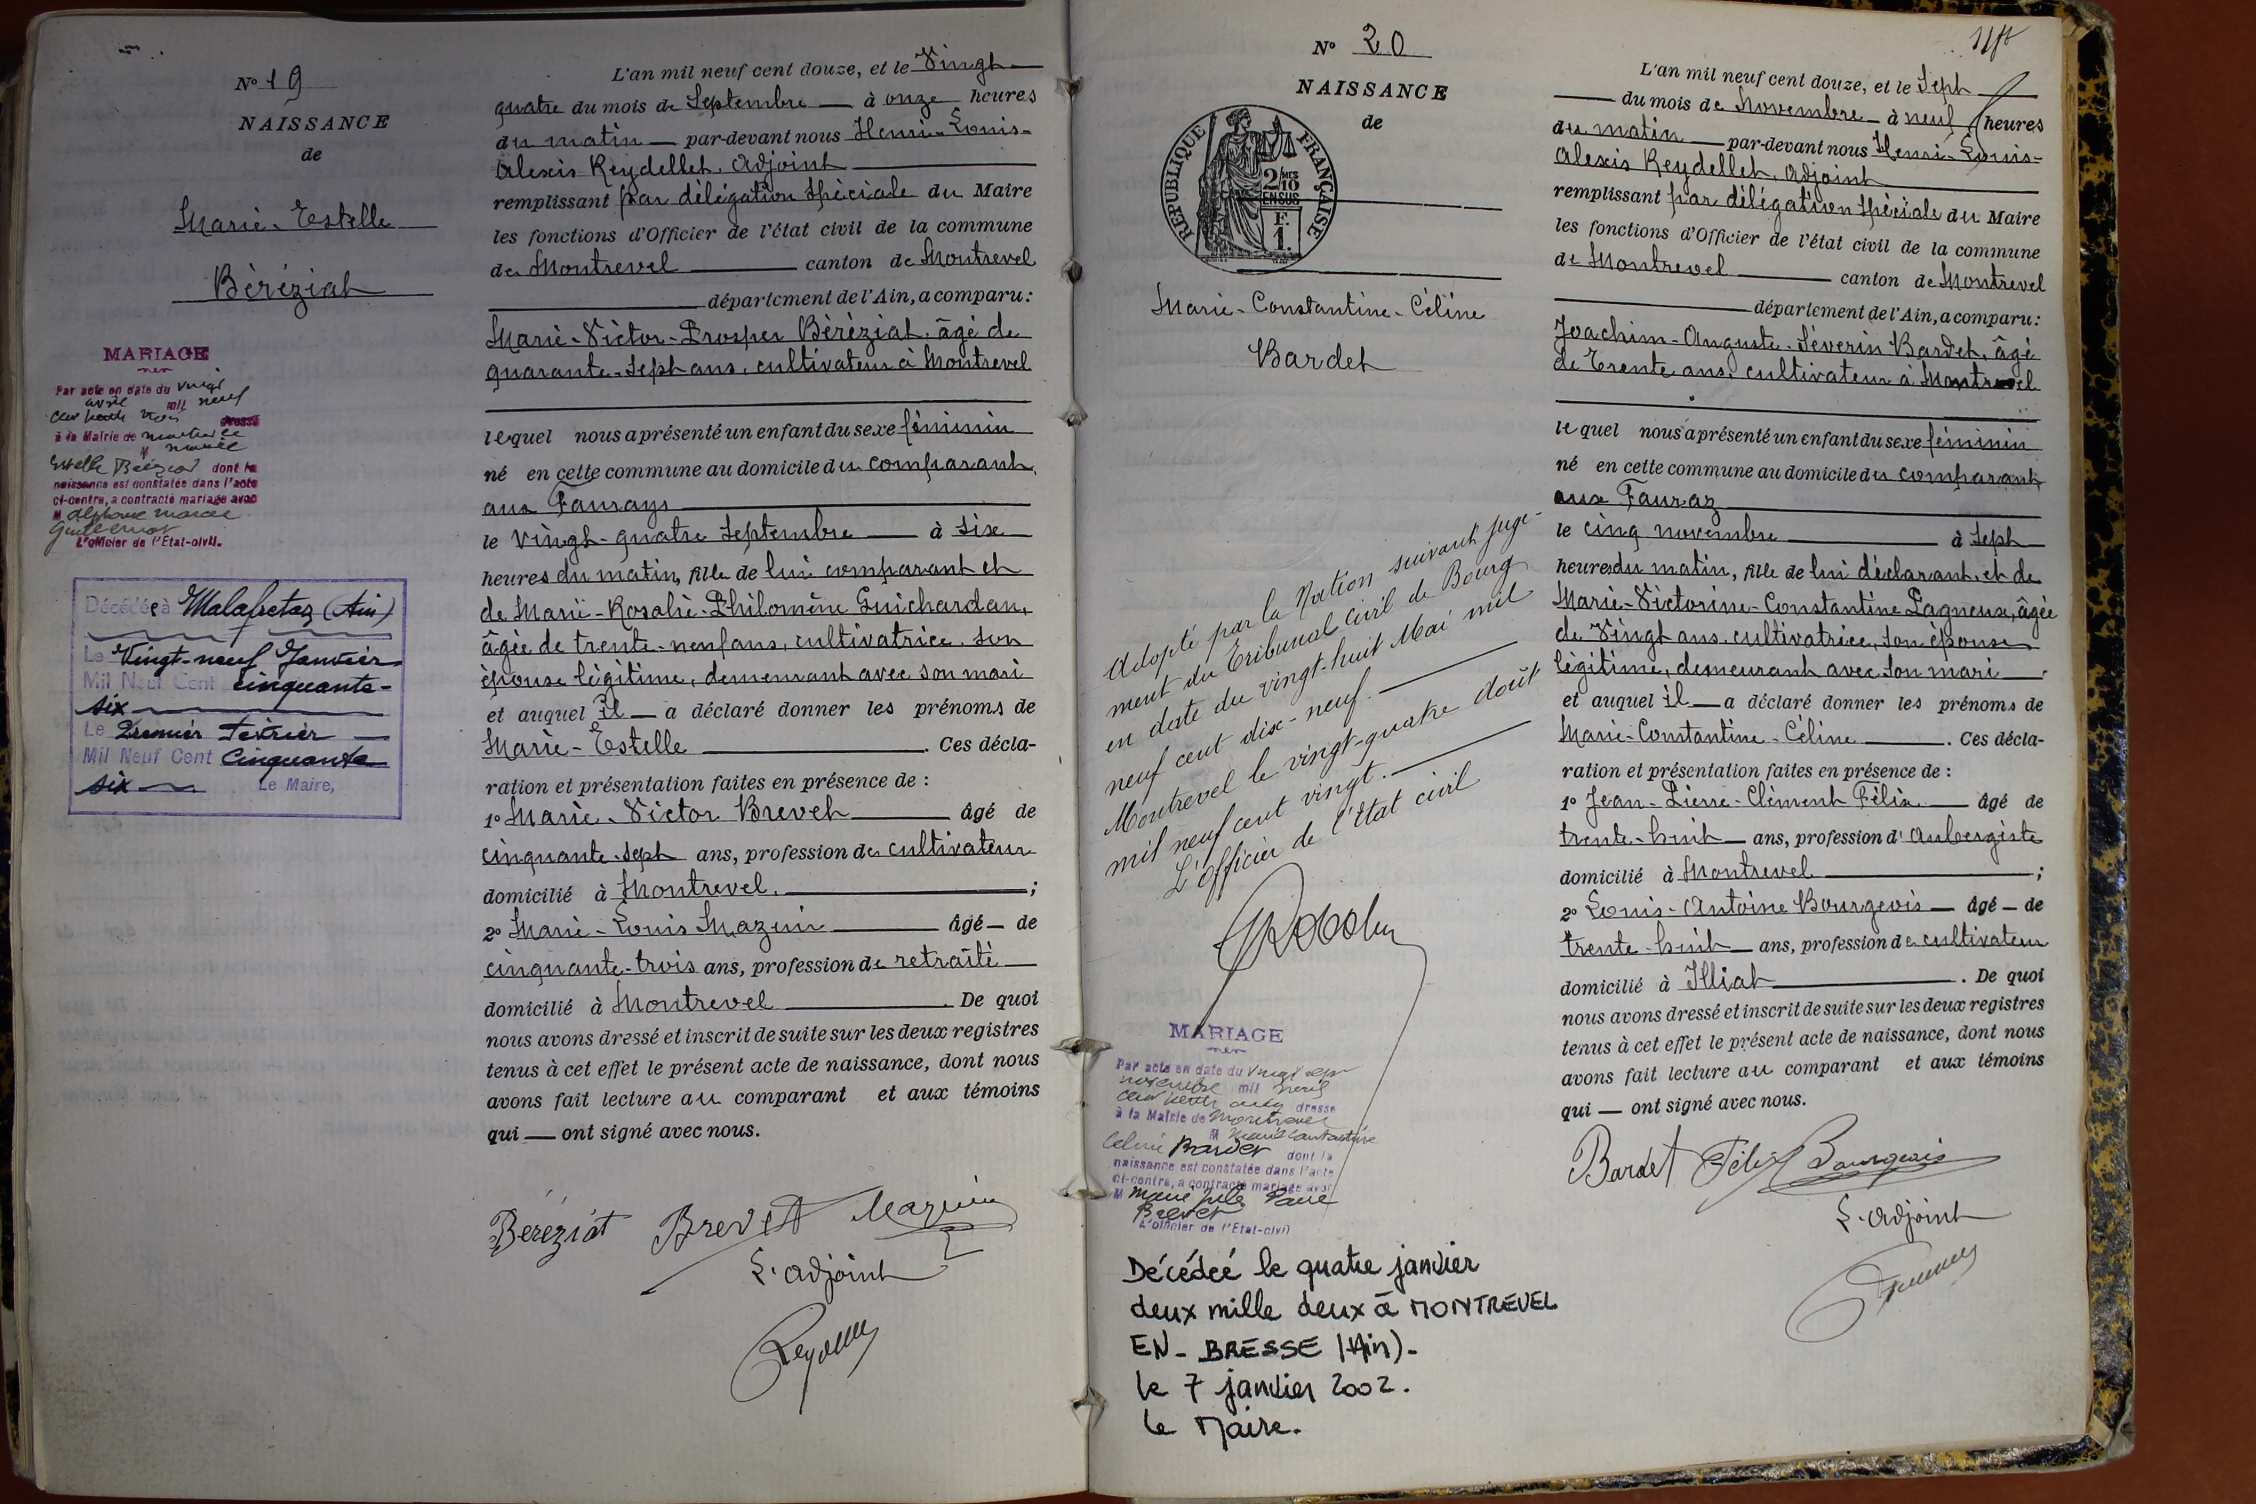 N° 19
NAISSANCE
de
Marie-Estelle
Béréziat
MARIAGE
Par acte en date du vingt
avril mil neuf
cent trente trois dressé
à la Mairie de
M Marie
Estelle Béréziat dont la
naissance est constatée dans l'acte
ci-contre, a contracté mariage avec
M Alphonse Marcel
L'officier de l'Etat-civil.
Décédée à Malafretaz (Ain)
Le Vingt-neuf Janvier
Mil Neuf Cent cinquante-
six
Le Premier Février
Mil Neuf Cent Cinquante
six Le Maire,
L'an mil neuf cent douze, et le Vingt
quatre du mois de Septembre à onze heures
du matin par-devant nous Henri-Louis-
Alexis Reydellet, Adjoint
remplissant par délégation spéciale du Maire
les fonctions d'Officier de l'état civil de la commune
de Montrevel canton de Montrevel
département de l'Ain, a comparu:
Marie-Victor-Prosper Béréziat, âgé de
quarante-sept ans, cultivateur à Montrevel
lequel nous a présenté un enfant du sexe féminin
né en cette commune au domicile du comparant,
aux Faurays
le vingt-quatre Septembre à six
heures du matin, fille de lui comparant et
de Marie-Rosalie-Philomène Guichardan,
âgée de trente-neuf ans, cultivatrice, son
épouse légitime, demeurant avec son mari
et auquel il a déclaré donner les prénoms de
Marie-Estelle . Ces décla-
ration et présentation faites en présence de :
1° Marie-Victor Brevet âgé de
cinquante-sept ans, profession de cultivateur
domicilié à Montrevel. ;
2° Marie-Louis Mazuir âgé de
cinquante-trois ans, profession de retraité
domicilié à Montrevel . De quoi
nous avons dressé et inscrit de suite sur les deux registres
tenus à cet effet le présent acte de naissance, dont nous
avons fait lecture au comparant et aux témoins
qui ont signé avec nous.
Béréziat Brevet Mazuir
L'adjoint
N° 20
NAISSANCE
de
REPUBLIQUE FRANÇAISE
2/10 MES
EN SUS
F.
1.
Marie-Constantine-Céline
Bardet
Adopté par la Nation suivant juge-
ment du Tribunal Civil de Bourg
en date du vingt-huit Mai mil
neuf cent dix-neuf.
Montrevel le vingt-quatre août
mil neuf cent vingt.
L'Officier de l'Etat civil
MARIAGE
Par acte en date du vingt sept
novembre mil neuf
cent trente cinq dressé
à la Mairie de Montrevel
M Marie Constantine
Céline Bardet dont la
naissance est constatée dans l'acte
ci-contre, a contracté mariage avec
M Marie Jules
Brevet
L'officier de l'Etat-civil
Décédée le quatre janvier
deux mille deux à MONTREVEL
EN-BRESSE (Ain)-
le 7 janvier 2002.
le Maire.
L'an mil neuf cent douze, et le Sept
du mois de Novembre à neuf heures
du matin par-devant nous Henri-Louis-
Alexis Reydellet, Adjoint
remplissant par délégation spéciale du Maire
les fonctions d'Officier de l'état civil de la commune
de Montrevel canton de Montrevel
département de l'Ain, a comparu:
Joachim-Auguste-Séverin Bardet, âgé
de Trente ans, cultivateur à Montrevel
lequel nous a présenté un enfant du sexe féminin
né en cette commune au domicile du comparant,
aux Fauraz
le cinq novembre à sept
heures du matin, fille de lui déclarant, et de
Marie-Victorine-Constantine Pagneux, âgée
de Vingt ans, cultivatrice, son épouse
légitime, demeurant avec son mari
et auquel il a déclaré donner les prénoms de
Marie-Constantine-Céline . Ces décla-
ration et présentation faites en présence de :
1° Jean-Pierre-Clément Félix âgé de
trente-huit ans, profession d'Aubergiste
domicilié à Montrevel ;
2° Louis-Antoine Bourgeois âgé de
trente-huit ans, profession de cultivateur
domicilié à Illiat . De quoi
nous avons dressé et inscrit de suite sur les deux registres
tenus à cet effet le présent acte de naissance, dont nous
avons fait lecture au comparant et aux témoins
qui ont signé avec nous.
Bardet Félix Bourgeois
L'adjoint